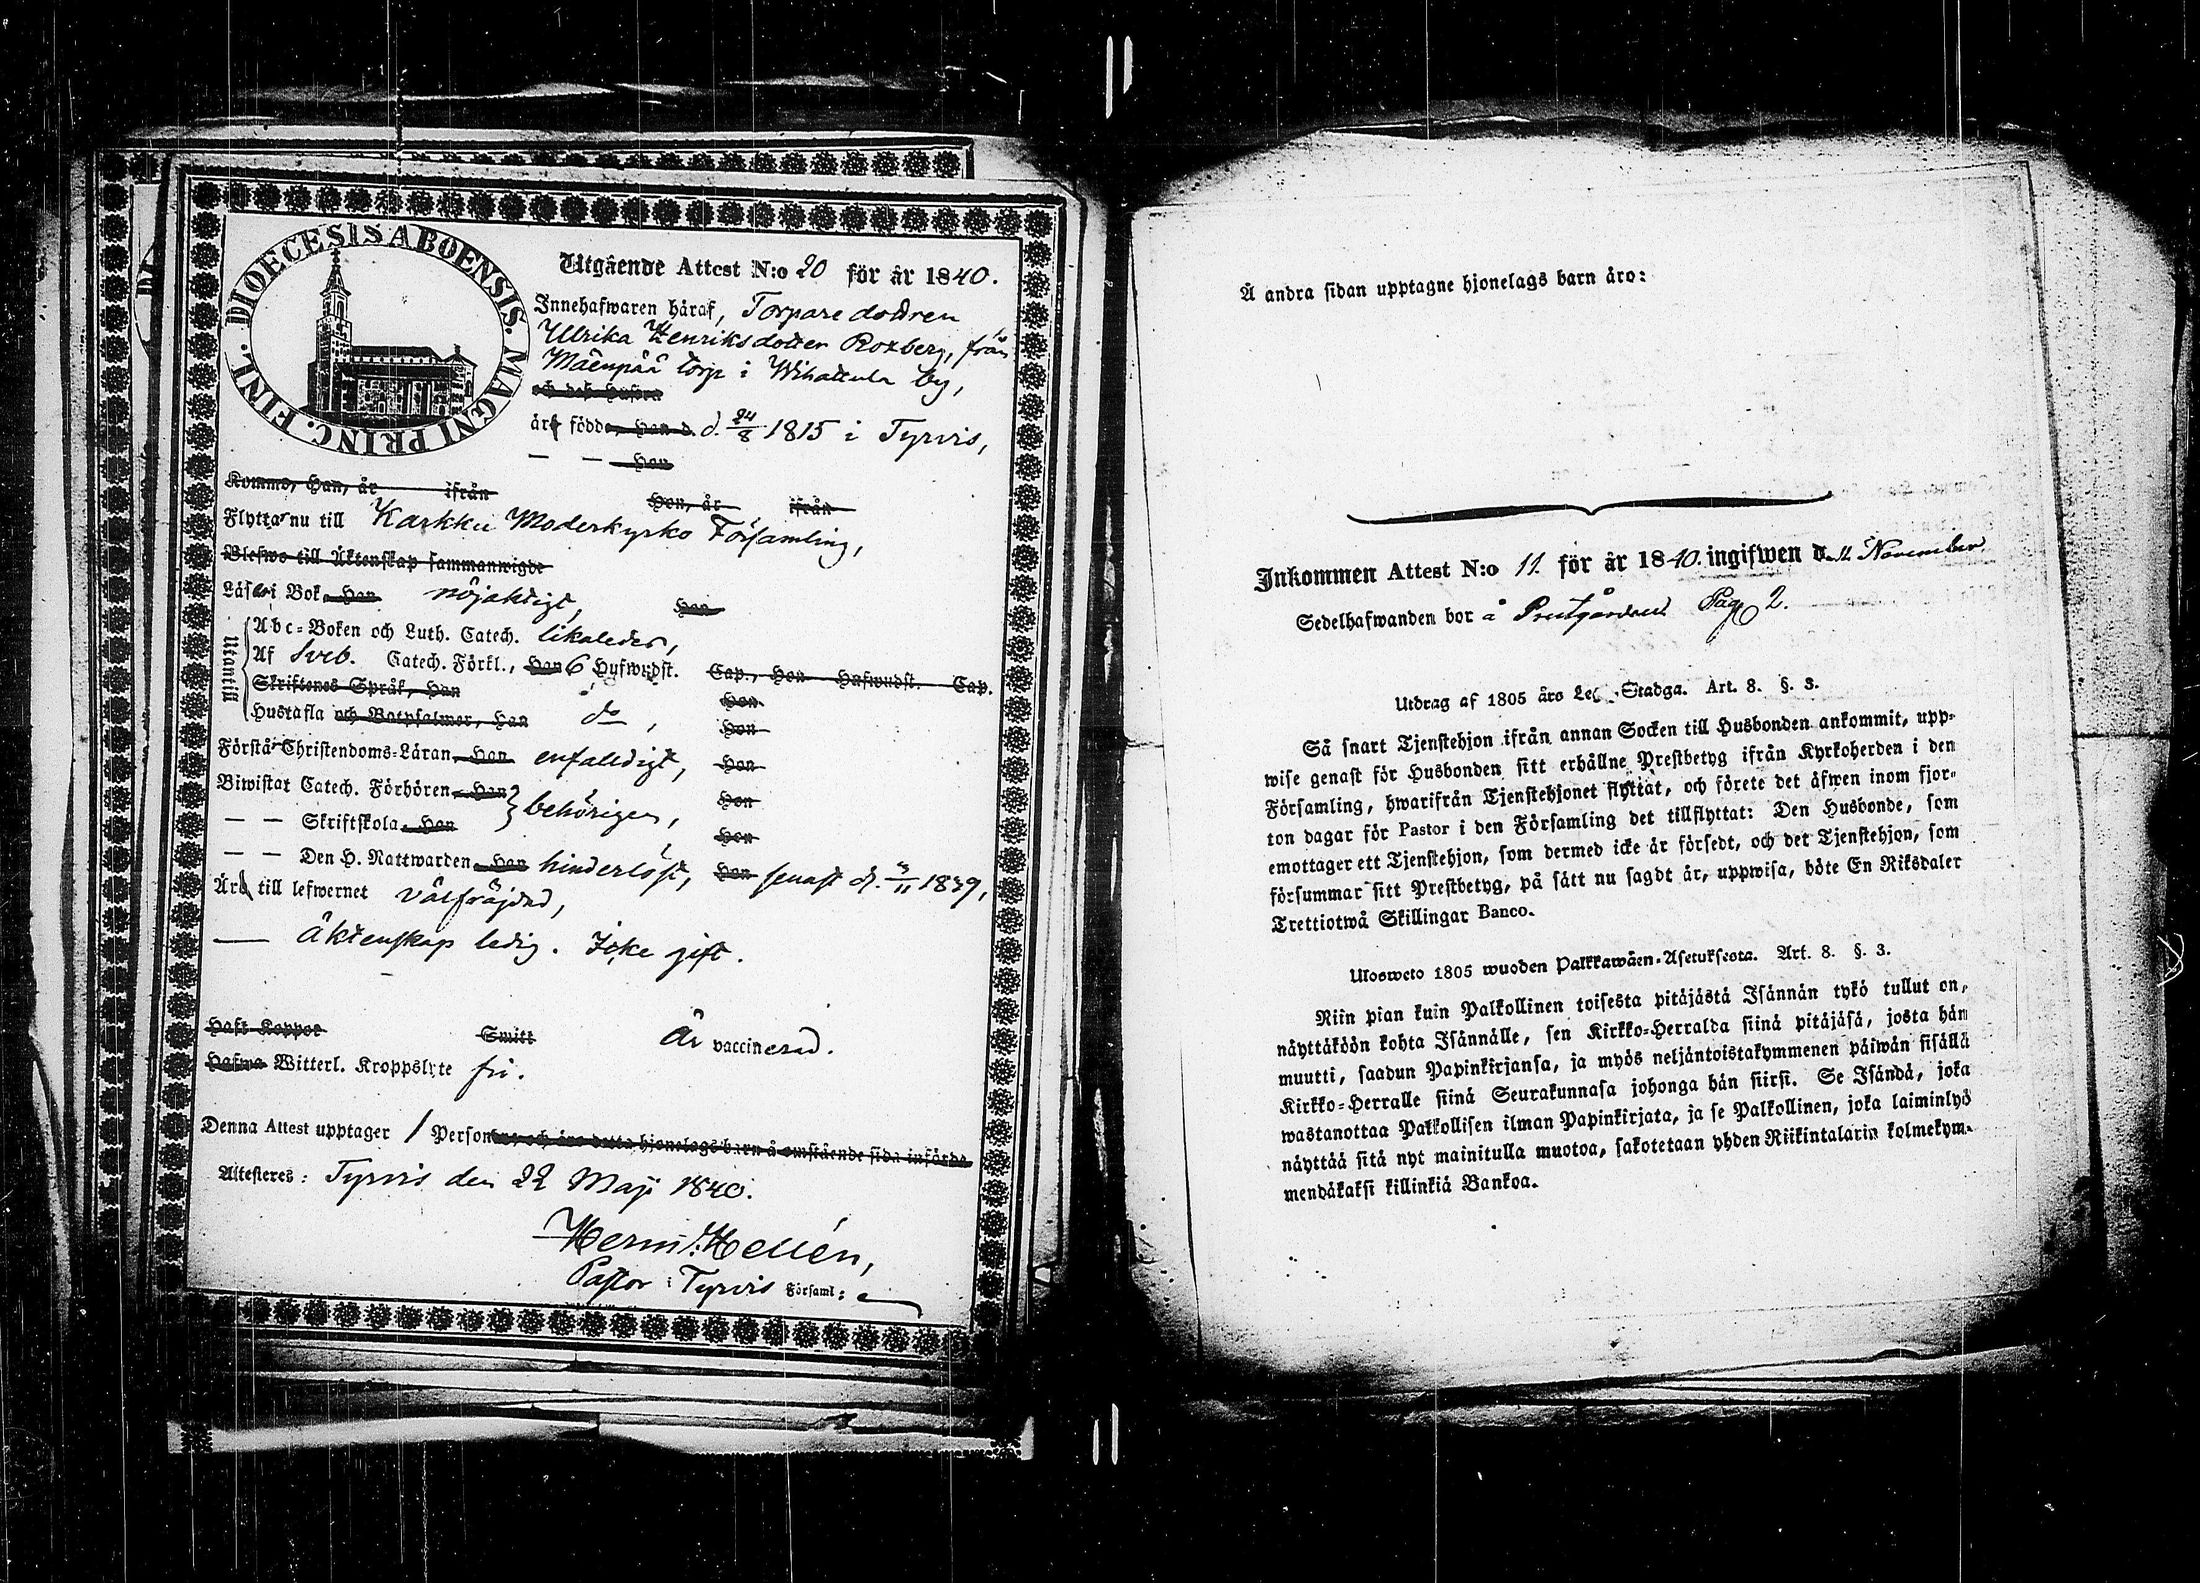 DIOECESIS ABOENSIS. MAGNI PRINC. FINL.
Utgående Attest N:o 20 för år 1840.
Innehafwaren håraf, Torpare dottren
Ulrika Henriksdotter Roxberg, från
Mäenpää torp i Wihattula by,
och deß hustru
äro födde, Han d. d. 24/8 1815 i Tyrvis,
— — Hon
Komme, Han, år ifrån Hon, år ifrån
Flyttar nu till Karkku Moderkyrko Församling,
Blefwo till Äktenskap sammanwigde
Läser i Bok, Han nöjaktigt, Hon
Utantill
Abc-Boken och Luth. Catech. likaledes,
Af Sveb. Catech. Förkl., Han 6 Hufwudst. Cap., Hon Hufwudst. Cap.
Skriftenes Språk, Han Hon
Hustafla och Botpsalmer, Han do, Hon
Förstår Christendoms-Läran, Han enfaldigt, Hon
Biwistat Catech. Förhören, Han behörigen, Hon
— — Skriftskola, Han Hon
— — Den H. Nattwarden, Han hinderlöst, Hon senast d. 3/11 1839,
Äro till lefwernet välfräjdad,
— äktenskap ledig. Icke gift.
Haft Koppor Smitt Är vaccinerad.
Hafwa Witterl. Kroppslyte fri.
Denna Attest upptager 1 Personer, och äro detta hjonelags barn å omstående sida införda
Attesteres: Tyrvis den 22 Maji 1840.
Herm: Hellén,
Pastor i Tyrvis Församl:
Å andra sidan upptagne hjonelags barn äro:
Inkommen Attest N:o 11. för år 1840. ingifwen d. 11 November
Sedelhafwanden bor å Prestgården Pag 2.
Utdrag af 1805 års Stadga. Art. 8. §. 3.
Så snart Tjenstehjon ifrån annan Socken till Husbonden ankommit, upp-
wise genast för Husbonden sitt erhållne Prestbetyg ifrån Kyrkoherden i den
Församling, hwarifrån Tjenstehjonet flyttat, och förete det åfwen inom fjor-
ton dagar för Pastor i den Församling det tillflyttat: Den Husbonde, som
emottager ett Tjenstehjon, som dermed icke är försedt, och det Tjenstehjon, som
försummar sitt Prestbetyg, på sätt nu sagdt är, uppwisa, böte En Riksdaler
Trettiotwå Skillingar Banco.
Ulosweto 1805 wuoden Palkkawäen-Asetuksesta. Art. 8. §. 3.
Niin pian kuin Palkollinen toisesta pitäjästä Isännän tykö tullut on,
näyttäköön kohta Isännälle, sen Kirkko-Herralda siinä pitäjäsä, josta hän
muutti, saadun Papinkirjansa, ja myös neljäntoistakymmenen päiwän sisällä
Kirkko-Herralle siinä Seurakunnasa johonga hän siirsi. Se Isändä, joka
wastanottaa Palkollisen ilman Papinkirjata, ja se Palkollinen, joka laiminlyö
näyttää sitä nyt mainitulla muotoa, sakotetaan yhden Riikintalarin kolmekym-
mendäkaksi killinkiä Bankoa.